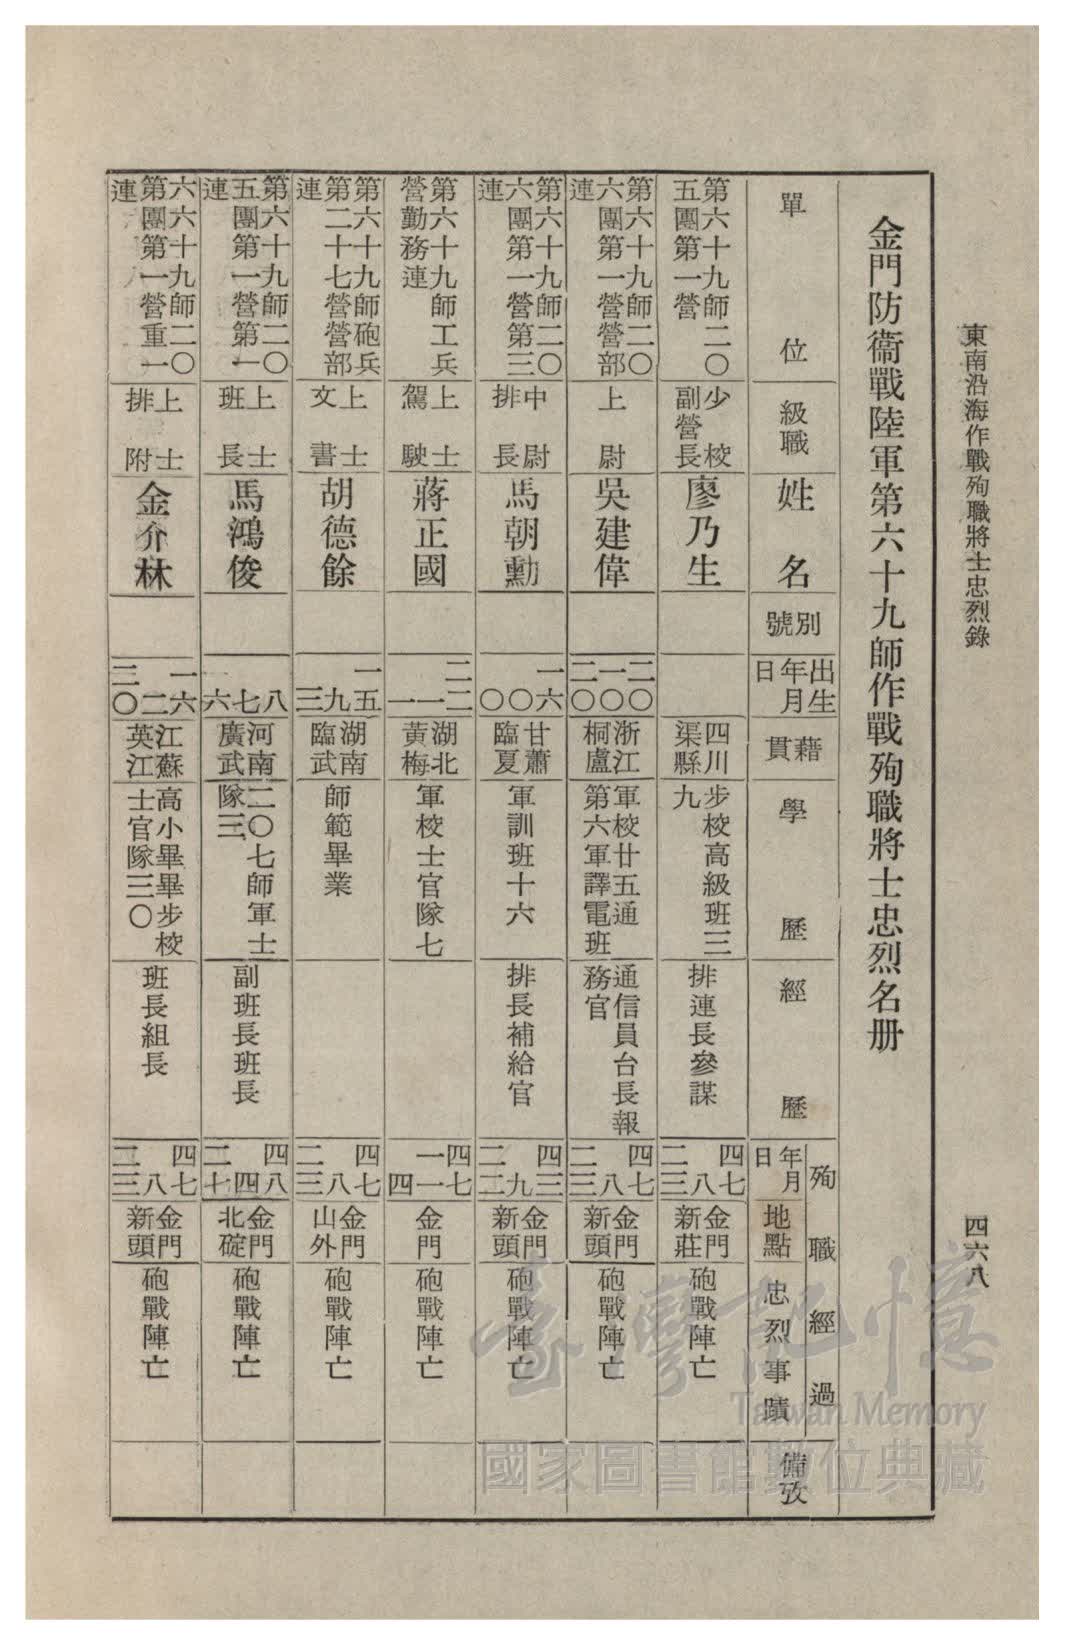 東南沿海作戰殉職將士忠烈錄
四六八
金門防衞戰陸軍第六十九師作戰殉職將士忠烈名册
單位
級職
姓名
別號
出生
年月
日
藉
貫
學歷
經歷
殉職經過
年月
日
地點
忠烈事蹟
備攷
第六十九師二〇
五團第一營
少校
副營長
廖乃生
四川
渠縣
步校高級班三
九
排連長參謀
四七
八
二三
金門
新莊
砲戰陣亡
第六十九師二〇
六團第一營營部
連
上尉
吳建偉
二〇
一〇
二〇
浙江
桐盧
軍校廿五通
第六軍譯電班
通信員台長報
務官
四七
八
二三
金門
新頭
砲戰陣亡
第六十九師二〇
六團第一營第三
連
中尉
排長
馬朝勳
一六
〇
〇
甘蕭
臨夏
軍訓班十六
排長補給官
四三
九
二二
金門
新頭
砲戰陣亡
第六十九師工兵
營勤務連
上士
駕駛
蔣正國
二二
一
一
湖北
黃梅
軍校士官隊七
四七
一
一四
金門
砲戰陣亡
第六十九師砲兵
第二十七營營部
連
上士
文書
胡德餘
一五
九
三
湖南
臨武
師範畢業
四七
八
二三
金門
山外
砲戰陣亡
第六十九師二〇
五團第一營第一
連
上士
班長
馬鴻俊
八
七
六
河南
廣武
二〇七師軍士
隊三
副班長班長
四八
四
二七
金門
北碇
砲戰陣亡
六六十九師二〇
第團第一營重一
連
上士
排附
金介林
一六
二
三〇
江蘇
英江
高小畢畢步校
士官隊三〇
班長組長
四七
八
二三
金門
新頭
砲戰陣亡
臺灣記憶
Taiwan Memory
國家圖書館數位典藏